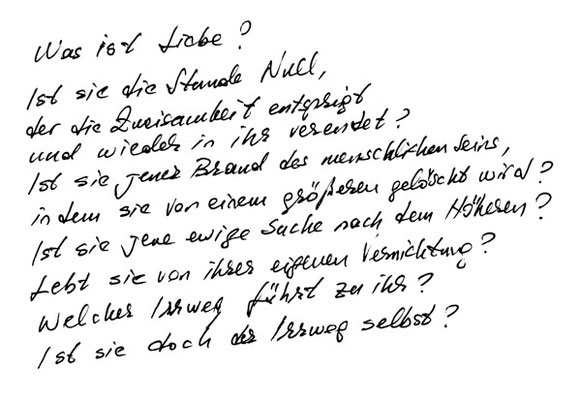 Was ist Liebe?
Ist sie die Stunde Null,
der die Zweisamkeit entspringt
und wieder in ihr verendet?
Ist sie jener Brand des menschlichen Seins,
in dem sie von einem größeren gelöscht wird?
Ist sie jene ewige Suche nach dem Höheren?
Lebt sie von ihrer eigenen Vernichtung?
Welcher Irrweg führt zu ihr?
Ist sie doch der Irrweg selbst?